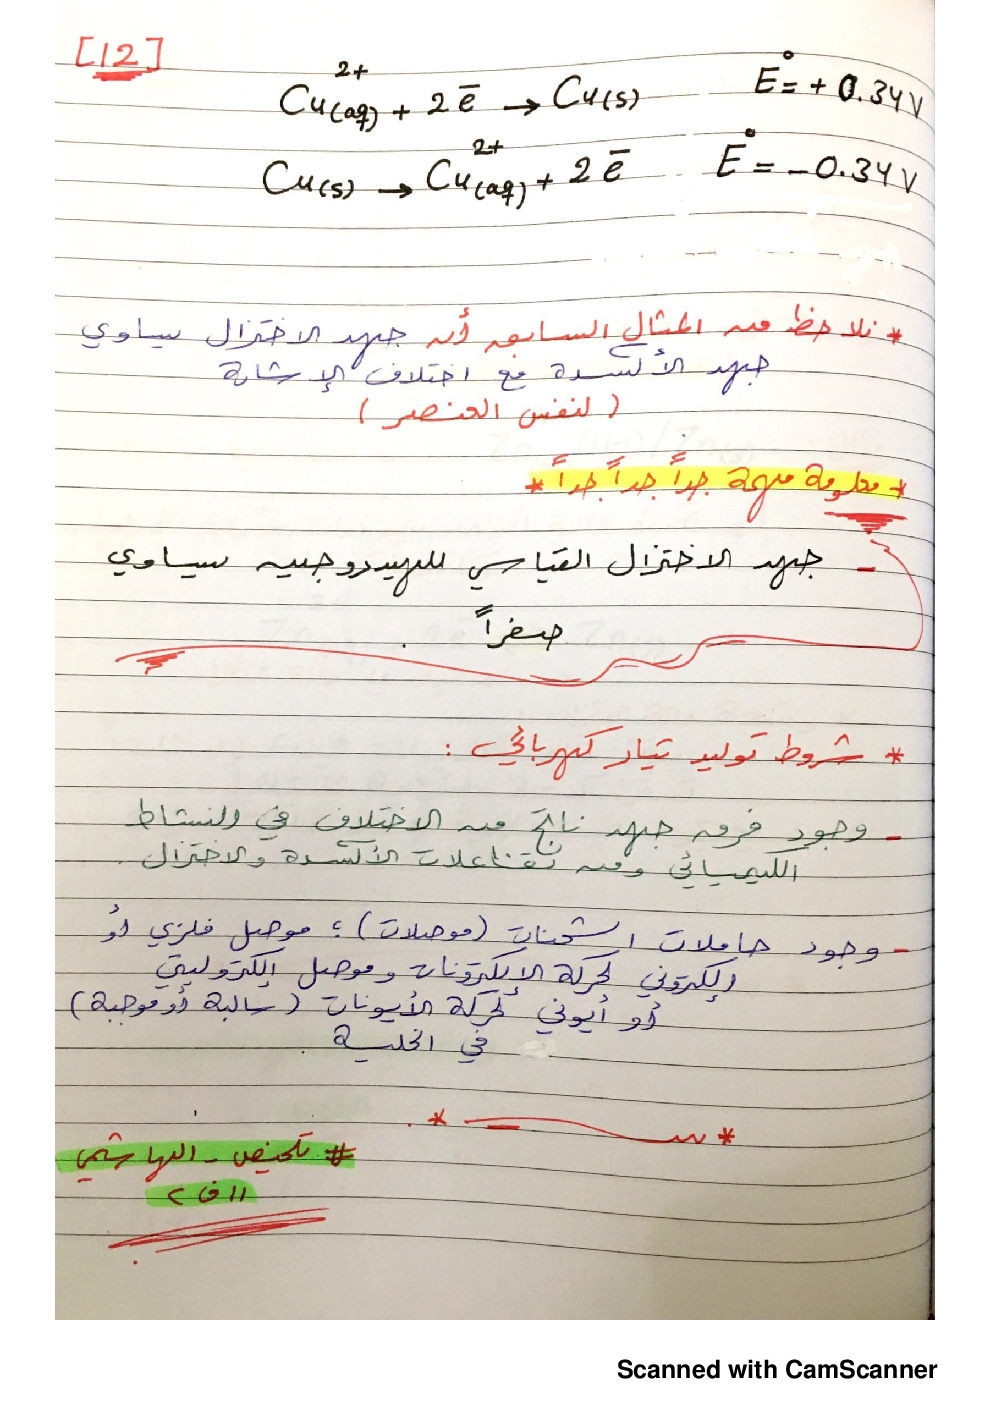 [12]
Cu²⁺(aq) + 2e⁻ → Cu(s) E° = + 0.34V
Cu(s) → Cu²⁺(aq) + 2e⁻ E° = -0.34V
* نلاحظ من المثال السابق أن جهد الاختزال يساوي
جهد الأكسدة مع اختلاف الإشارة
( لنفس العنصر )
* معلومة مهمة جداً جداً جداً *
- جهد الاختزال القياسي للهيدروجين يساوي
صفراً
* شروط توليد تيار كهربائي :
- وجود فرق جهد ناتج من الاختلاف في النشاط
الكيميائي ومن تفاعلات الأكسدة والاختزال .
- وجود حاملات الشحنات (موصلات) ؛ موصل فلزي أو
إلكتروني لحركة الإلكترونات وموصل إلكتروليتي
أو أيوني لحركة الأيونات ( سالبة أو موجبة )
في الخلية .
# تلخيص - الهاشمي
١١ ف ٢
Scanned with CamScanner